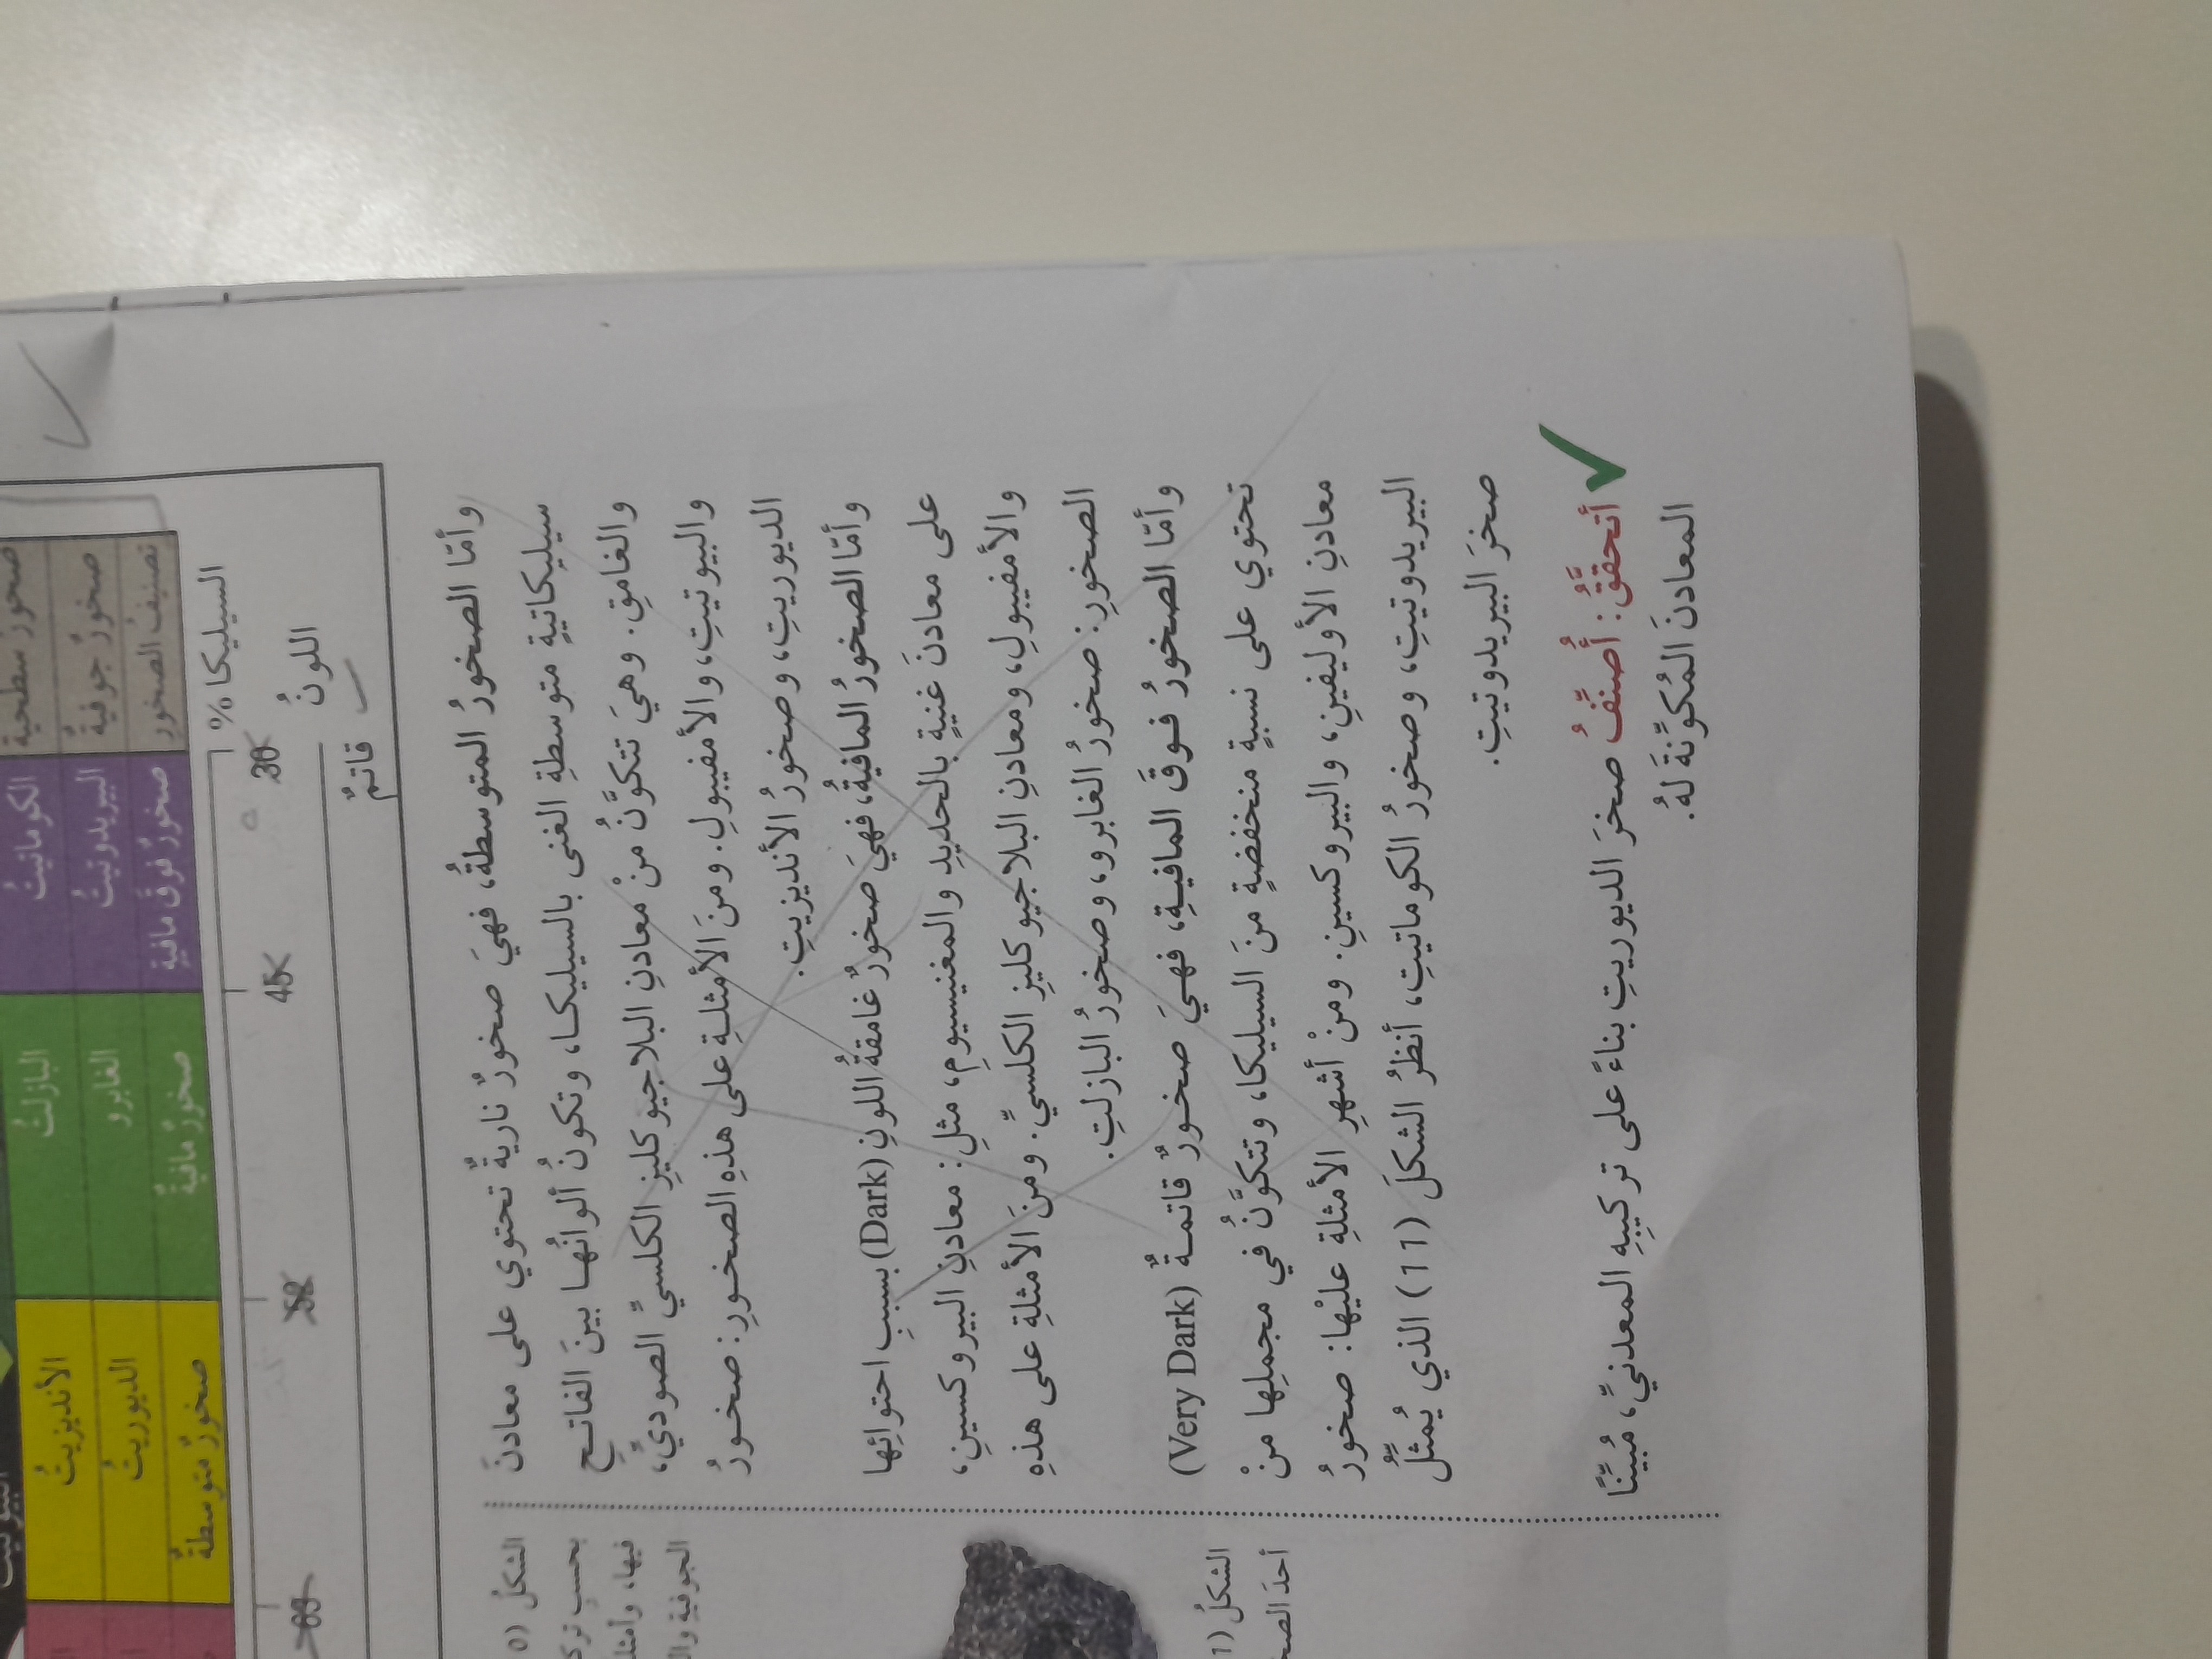 الكوماتيت
البازلت
الأنديزيت
صخور سطحية
صخورٌ جوفيةٌ
البيريدوتيتُ
الغابرو
الديوريتُ
تصنيفُ الصخورِ
صخورٌ فوقَ مافيةٍ
صخورٌ مافيةٌ
صخورٌ متوسطةٌ
السيليكا %
30
45
52
63
اللونُ
قاتمٌ
وأمّا الصخورُ المتوسطةُ، فهيَ صخورٌ ناريةٌ تحتوي على معادنَ
سيليكاتيةٍ متوسطةِ الغنى بالسيليكا، وتكونُ ألوانُها بينَ الفاتحِ
والغامقِ. وهيَ تتكوَّنُ منْ معادنِ البلاجيوكليزِ الكلسيِّ الصوديِّ،
والبيوتيتِ، والأمفيبولِ. ومنَ الأمثلةِ على هذهِ الصخورِ: صخورُ
الديوريتِ، وصخورُ الأنديزيتِ.
وأمّا الصخورُ المافيةُ، فهيَ صخورٌ غامقةُ اللونِ (Dark) بسببِ احتوائِها
على معادنَ غنيةٍ بالحديدِ والمغنيسيومِ، مثلِ: معادنِ البيروكسينِ،
والأمفيبولِ، ومعادنِ البلاجيوكليزِ الكلسيِّ. ومنَ الأمثلةِ على هذهِ
الصخورِ: صخورُ الغابرو، وصخورُ البازلتِ.
وأمّا الصخورُ فوقَ المافيةِ، فهيَ صخورٌ قاتمةٌ (Very Dark)
تحتوي على نسبةٍ منخفضةٍ منَ السيليكا، وتتكوَّنُ في مجملِها منْ
معادنِ الأوليفينِ، والبيروكسينِ. ومنْ أشهرِ الأمثلةِ عليْها: صخورُ
البيريدوتيتِ، وصخورُ الكوماتيتِ، أنظرُ الشكلَ (11) الذي يُمثِّلُ
صخرَ البيريدوتيتِ.
أتحقَّقُ: أُصنِّفُ صخرَ الديوريتِ بناءً على تركيبِهِ المعدنيِّ، مُبيِّنًا
المعادنَ المُكوِّنةَ لهُ.
الشكلُ
بحسبِ
فيها، وأمثلة
الجوفيةِ
الشكلُ
أحدَ